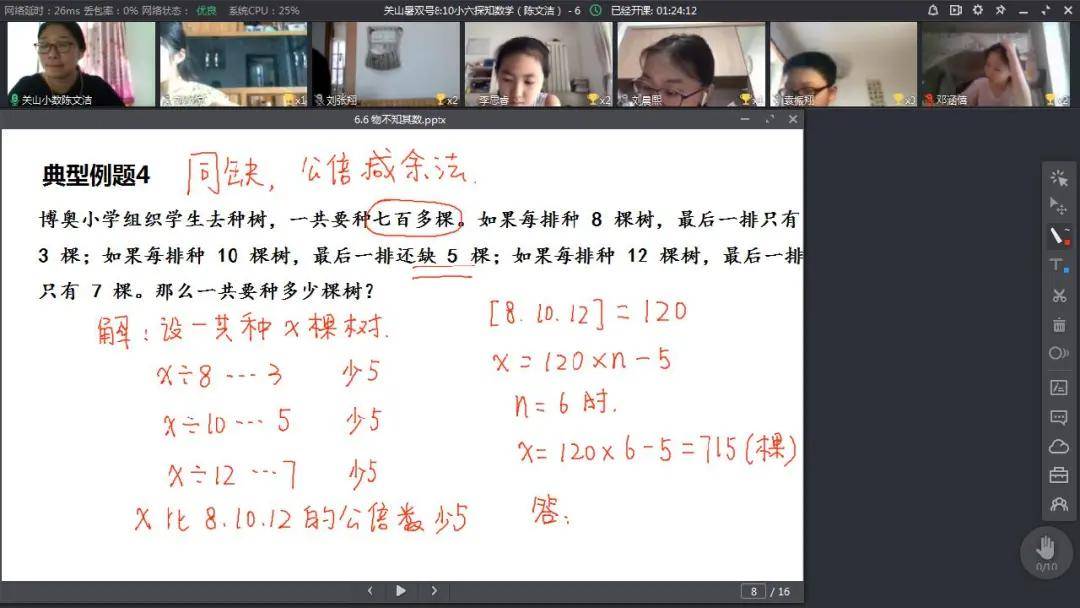 网络延时：26ms 丢包率：0% 网络状态：优良 系统CPU：25%
关山暑双号8:10小六探知数学（陈文洁）- 6
已经开课: 01:24:12
关山小数陈文洁
x1
刘张栩
x2
李思睿
x2
刘晨熙
袁振翔
x3
邓涵倩
6.6 物不知其数.pptx
典型例题4
同缺，公倍减余法.
博奥小学组织学生去种树，一共要种七百多棵。如果每排种 8 棵树，最后一排只有
3 棵；如果每排种 10 棵树，最后一排还缺 5 棵；如果每排种 12 棵树，最后一排
只有 7 棵。那么一共要种多少棵树？
解：设一共种 x 棵树.
x÷8 … 3 少5
x÷10 … 5 少5
x÷12 … 7 少5
x 比 8.10.12 的公倍数少5
[8.10.12]=120
x=120×n-5
n=6时.
x=120×6-5=715(棵)
答：
8 / 16
0/10